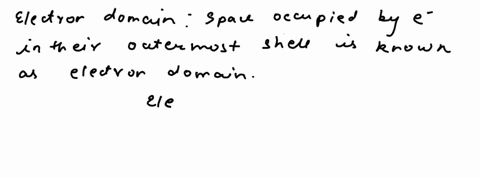 Electron domain: Space occupied by e⁻
in their outermost shell is known
as electron domain.
Ele